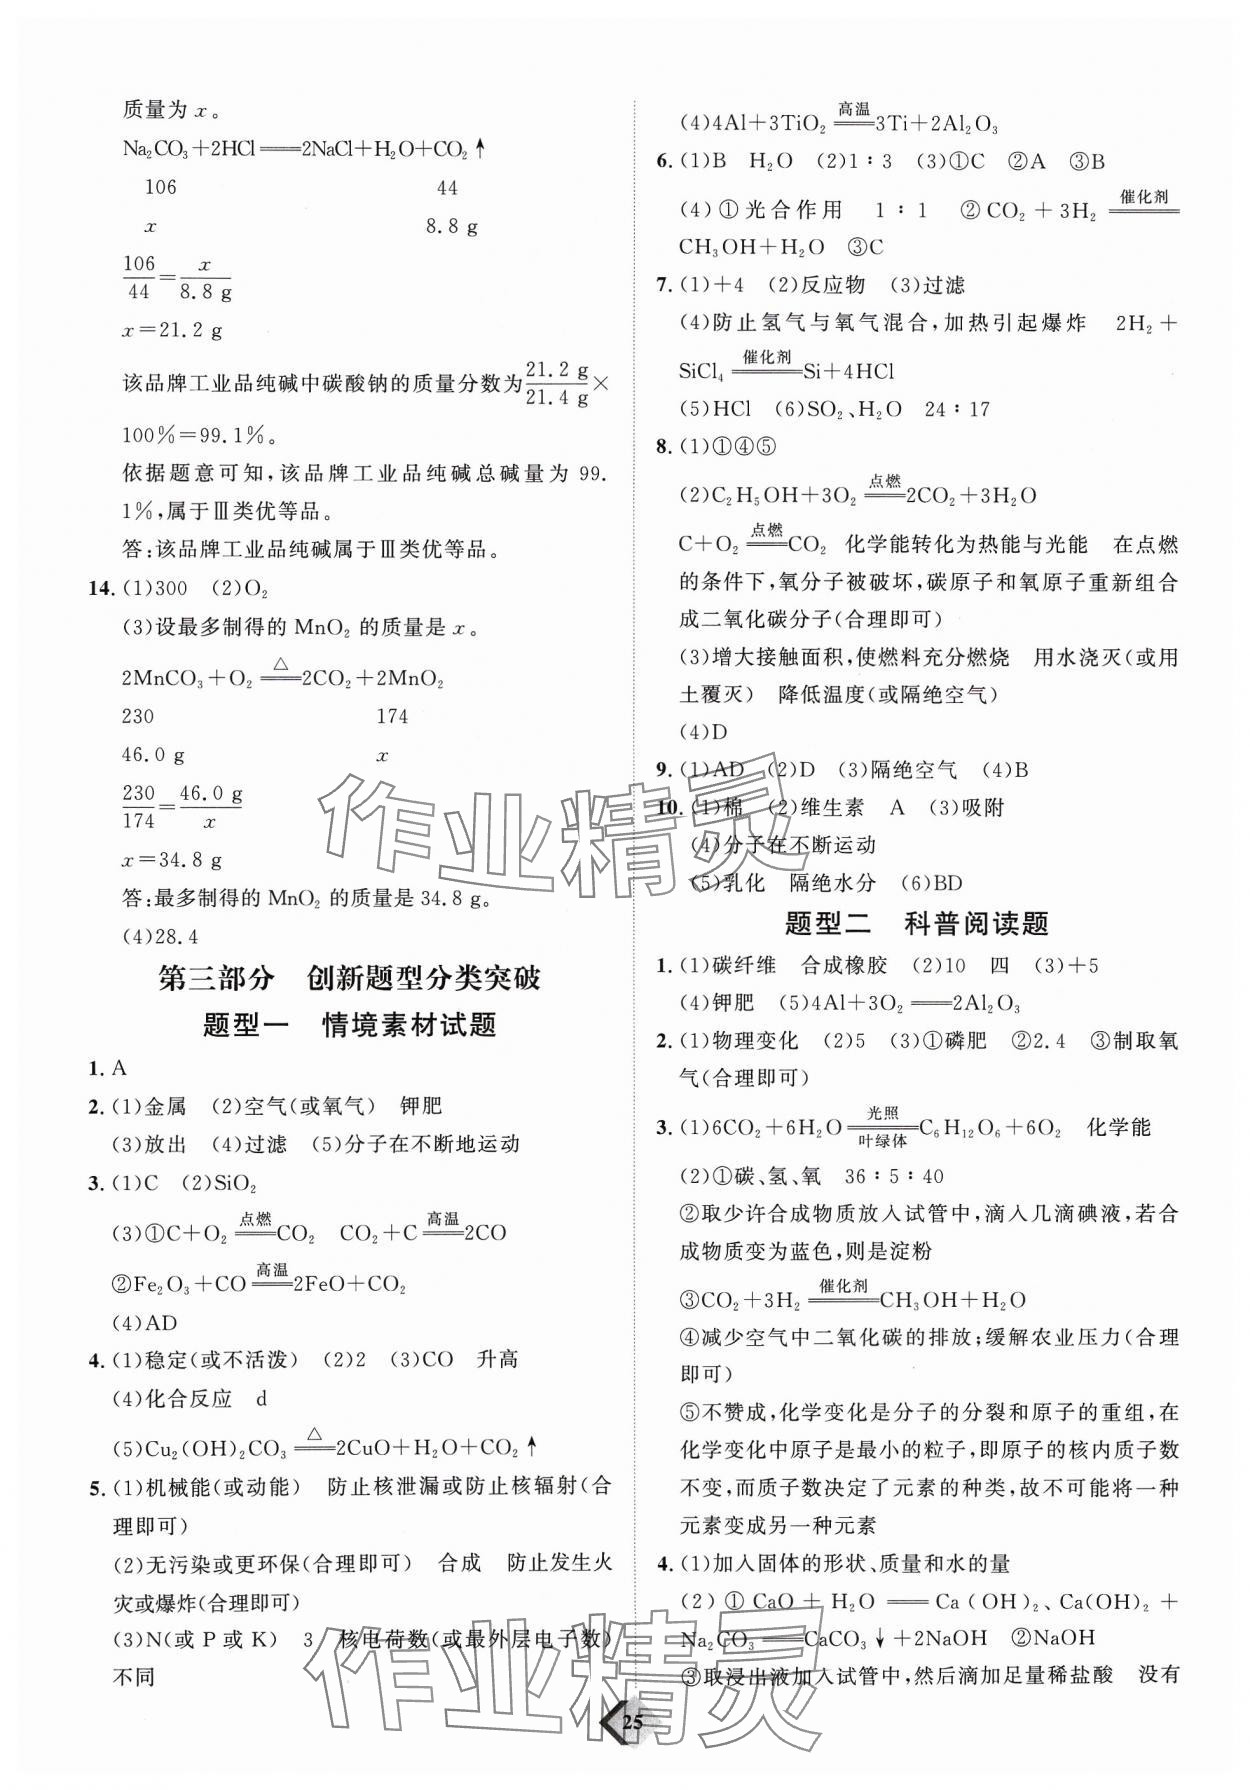 质量为 x。
Na₂CO₃+2HCl══2NaCl+H₂O+CO₂↑
106 44
x 8.8 g
106/44=x/8.8 g
x=21.2 g
该品牌工业品纯碱中碳酸钠的质量分数为21.2 g/21.4 g×
100%=99.1%。
依据题意可知,该品牌工业品纯碱总碱量为 99.
1%,属于Ⅲ类优等品。
答:该品牌工业品纯碱属于Ⅲ类优等品。
14. (1)300 (2)O₂
(3)设最多制得的 MnO₂ 的质量是 x。
2MnCO₃+O₂ ══△══ 2CO₂+2MnO₂
230 174
46.0 g x
230/174=46.0 g/x
x=34.8 g
答:最多制得的 MnO₂ 的质量是 34.8 g。
(4)28.4
第三部分 创新题型分类突破
题型一 情境素材试题
1. A
2. (1)金属 (2)空气(或氧气) 钾肥
(3)放出 (4)过滤 (5)分子在不断地运动
3. (1)C (2)SiO₂
(3)①C+O₂ ══点燃══ CO₂ CO₂+C ══高温══ 2CO
②Fe₂O₃+CO ══高温══ 2FeO+CO₂
(4)AD
4. (1)稳定(或不活泼) (2)2 (3)CO 升高
(4)化合反应 d
(5)Cu₂(OH)₂CO₃ ══△══ 2CuO+H₂O+CO₂↑
5. (1)机械能(或动能) 防止核泄漏或防止核辐射(合
理即可)
(2)无污染或更环保(合理即可) 合成 防止发生火
灾或爆炸(合理即可)
(3)N(或 P 或 K) 3 核电荷数(或最外层电子数)
不同
(4)4Al+3TiO₂ ══高温══ 3Ti+2Al₂O₃
6. (1)B H₂O (2)1∶3 (3)①C ②A ③B
(4)①光合作用 1∶1 ②CO₂+3H₂ ══催化剂══
CH₃OH+H₂O ③C
7. (1)+4 (2)反应物 (3)过滤
(4)防止氢气与氧气混合,加热引起爆炸 2H₂+
SiCl₄ ══催化剂══ Si+4HCl
(5)HCl (6)SO₂、H₂O 24∶17
8. (1)①④⑤
(2)C₂H₅OH+3O₂ ══点燃══ 2CO₂+3H₂O
C+O₂ ══点燃══ CO₂ 化学能转化为热能与光能 在点燃
的条件下,氧分子被破坏,碳原子和氧原子重新组合
成二氧化碳分子(合理即可)
(3)增大接触面积,使燃料充分燃烧 用水浇灭(或用
土覆灭) 降低温度(或隔绝空气)
(4)D
9. (1)AD (2)D (3)隔绝空气 (4)B
10. (1)棉 (2)维生素 A (3)吸附
(4)分子在不断运动
(5)乳化 隔绝水分 (6)BD
题型二 科普阅读题
1. (1)碳纤维 合成橡胶 (2)10 四 (3)+5
(4)钾肥 (5)4Al+3O₂══2Al₂O₃
2. (1)物理变化 (2)5 (3)①磷肥 ②2.4 ③制取氧
气(合理即可)
3. (1)6CO₂+6H₂O ══光照/叶绿体══ C₆H₁₂O₆+6O₂ 化学能
(2)①碳、氢、氧 36∶5∶40
②取少许合成物质放入试管中,滴入几滴碘液,若合
成物质变为蓝色,则是淀粉
③CO₂+3H₂ ══催化剂══ CH₃OH+H₂O
④减少空气中二氧化碳的排放;缓解农业压力(合理
即可)
⑤不赞成,化学变化是分子的分裂和原子的重组,在
化学变化中原子是最小的粒子,即原子的核内质子数
不变,而质子数决定了元素的种类,故不可能将一种
元素变成另一种元素
4. (1)加入固体的形状、质量和水的量
(2)①CaO+H₂O══Ca(OH)₂、Ca(OH)₂+
Na₂CO₃══CaCO₃↓+2NaOH ②NaOH
③取浸出液加入试管中,然后滴加足量稀盐酸 没有
25
作业精灵
作业精灵